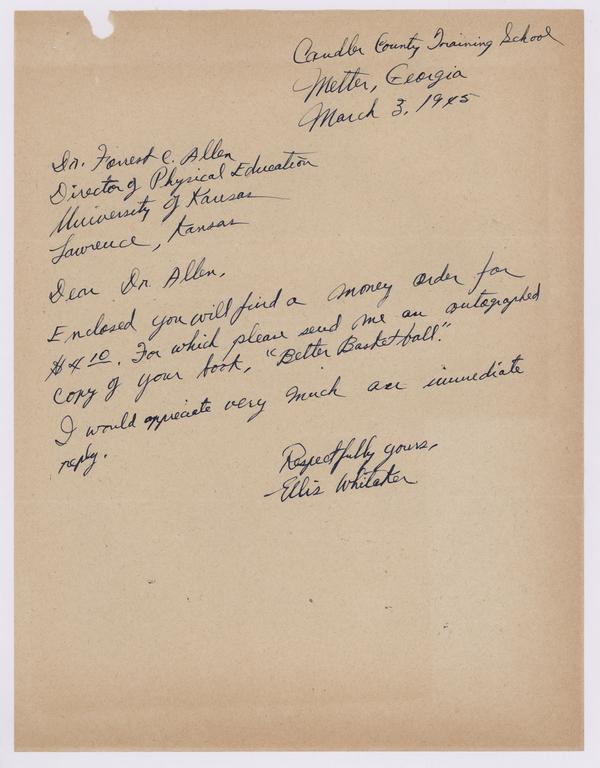 Candler County Training School
Metter, Georgia
March 3, 1945
Dr. Forrest C. Allen
Director of Physical Education
University of Kansas
Lawrence, Kansas
Dear Dr. Allen,
Enclosed you will find a money order for
$4 10. For which please send me an autographed
copy of your book, "Better Basketball".
I would appreciate very much an immediate
reply.
Respectfully yours,
Ellis Whitaker